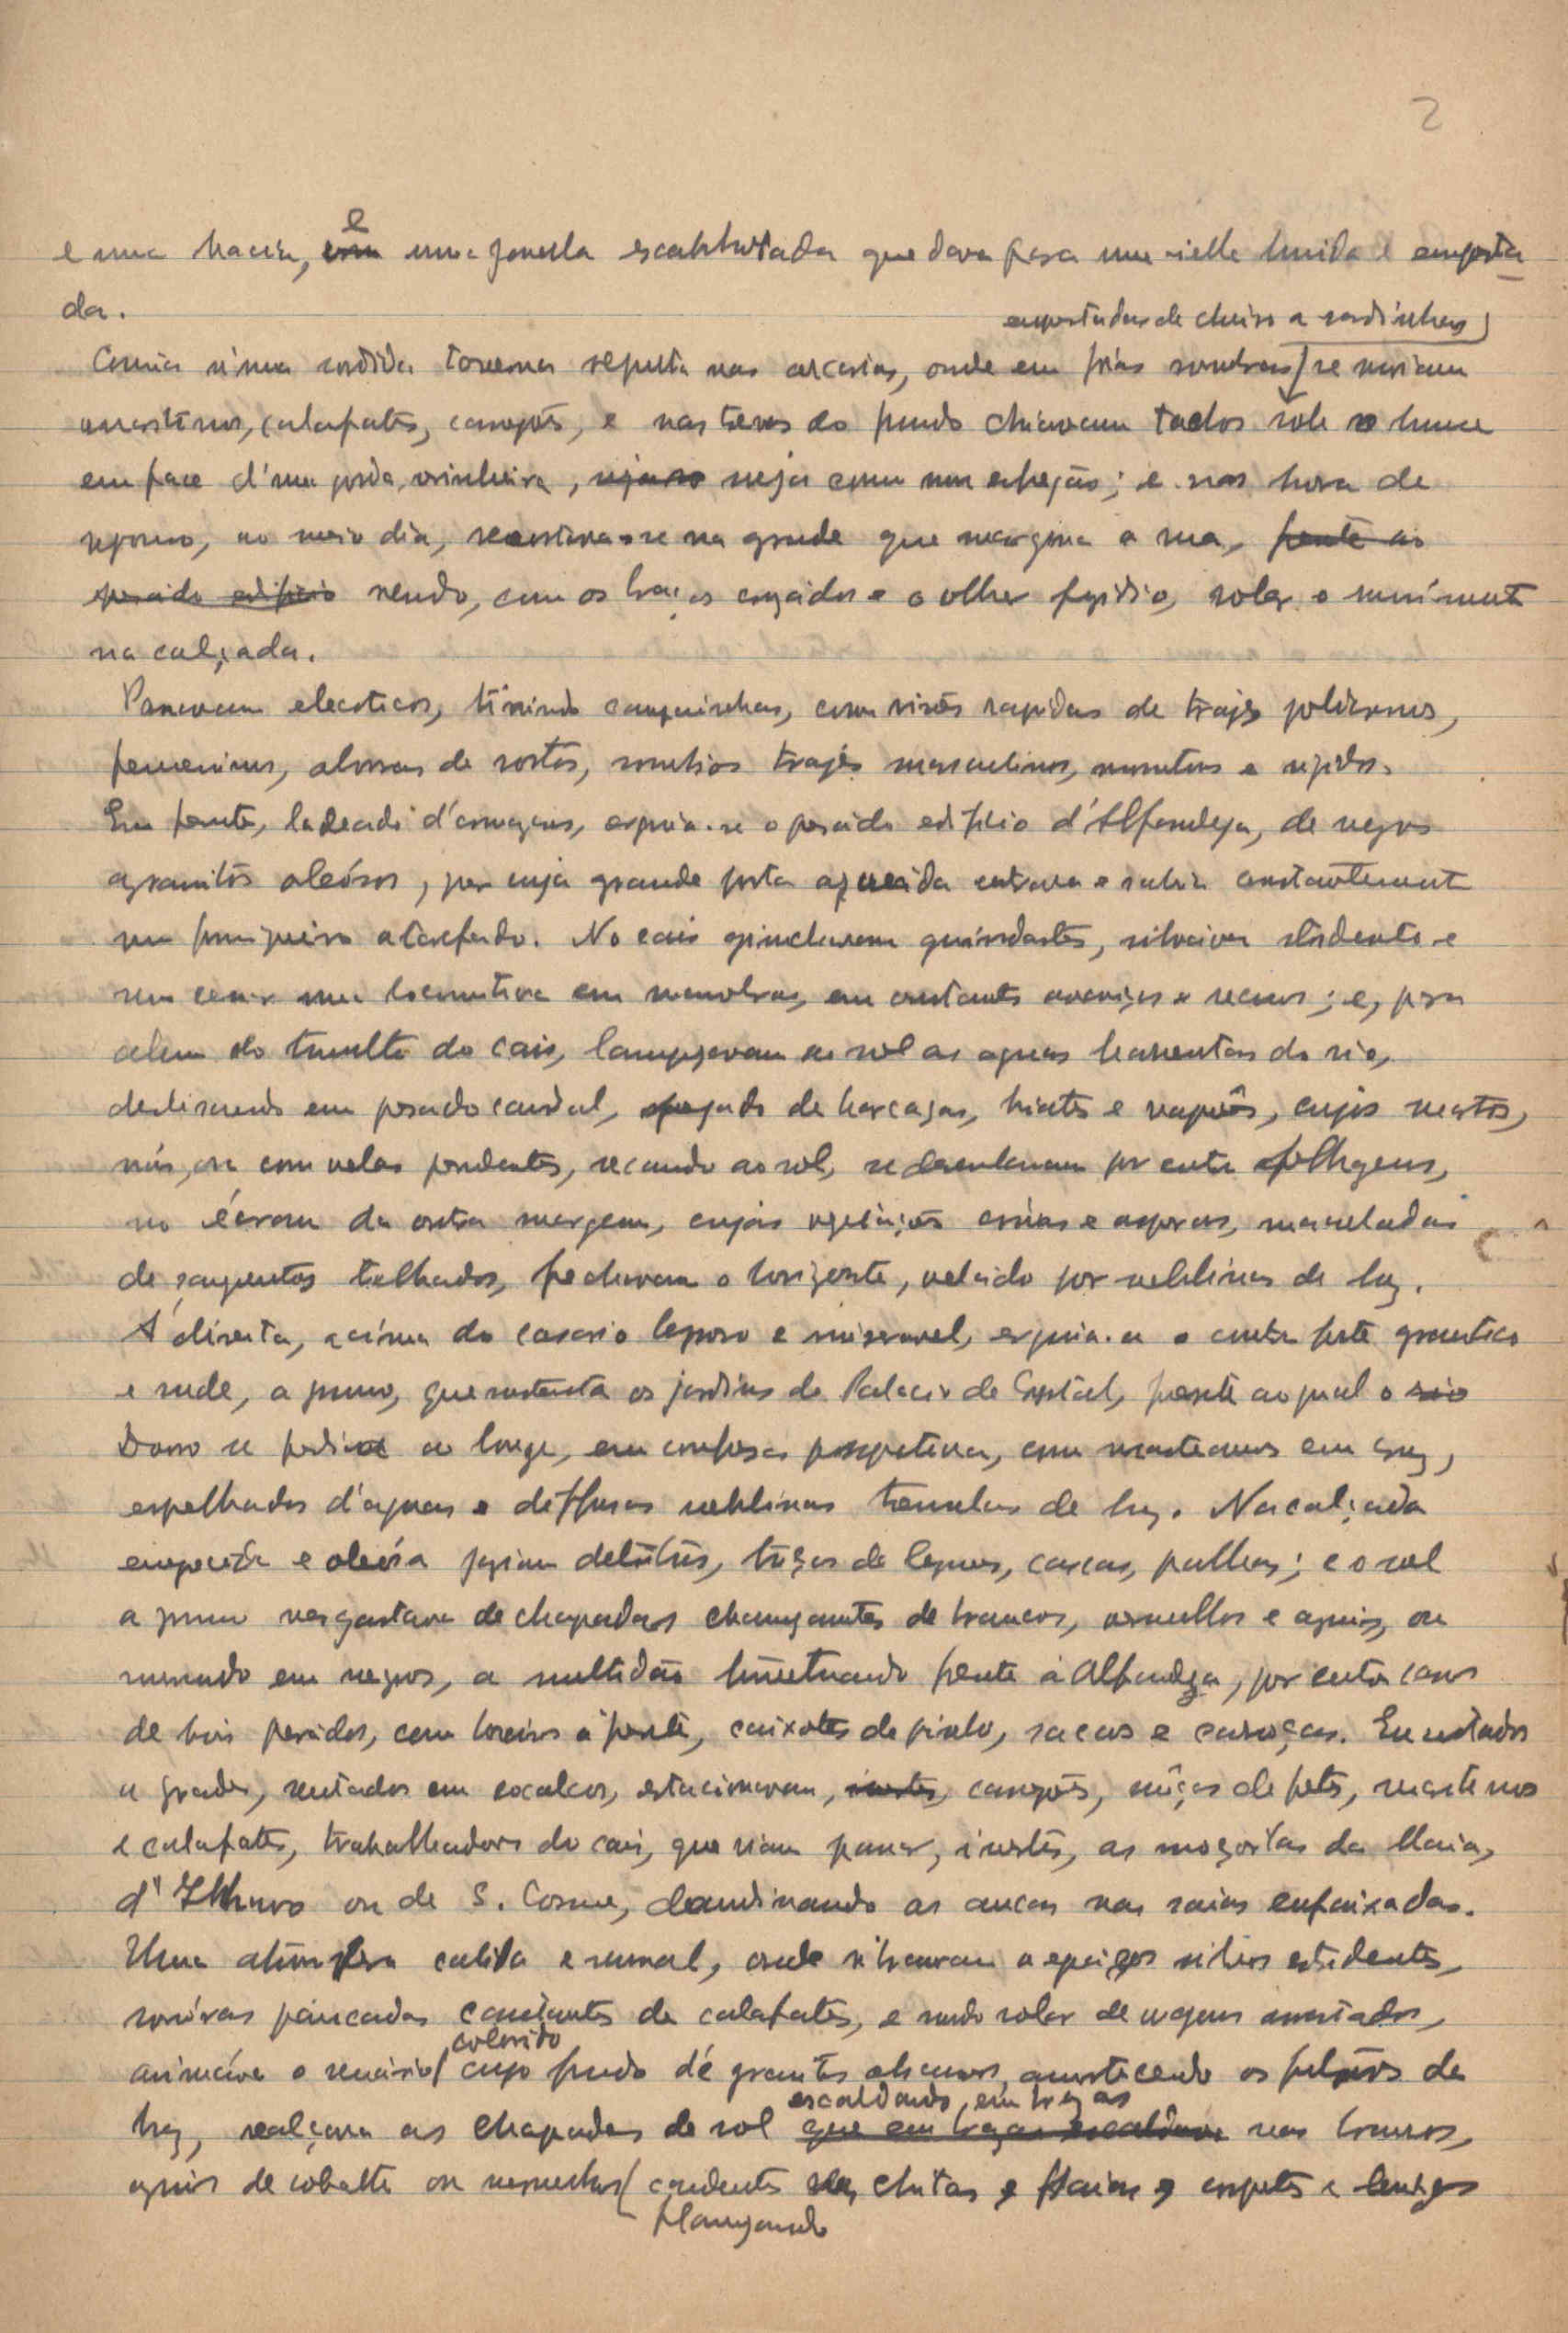 2
e uma bacia, e uma janella escalavrada que dava para uma viella humida e empesta-
da.
empestadas de cheiro a sardinhas
Comia n'uma sordida taverna nas arcarias, onde em frias sombras se reuniam
maritimos, calafates, carrejões, e nas trevas do fundo chiavam tachos sob o lume
em face d'uma gorda vendeira, negra como um carvão; e nas horas de
repouso, ao meio dia, recostava-se na grade que margina a rua, frente ao
pesado edificio vendo, com os braços cruzados e o olhar fugidio, rolar o movimento
na calçada.
Passavam electricos, tinindo campainhas, com visões rapidas de trajes policromos,
femeninos, alvuras de rostos, sombrios trajes masculinos, e rigidos.
Em frente, ladeado d'armazens, erguia-se o pesado edificio d'Alfandega, de negros
granitos oleósos, por cuja grande porta entrava e sahia constantemente
um formigueiro atarefado. No cais guinchavam guindastes, silvava stridente e
sem cessar uma locomotiva em manobras, em constantes avanços e recuos; e, para
alem do tumulto do cais, lampejavam ao sol as aguas barrentas do rio,
deslisando em pesado caudal, de barcaças, hiates e vapores, cujos mastros,
nús, ou com velas pendentes, secando ao sol, se desenhavam por entre folhagens,
no écran da outra margem, cujas vegetações e asperas, maculadas
de sangrentos telhados, fechavam o horizonte, velado por neblinas de luz.
Á direita, acima do casario leproso e miseravel, erguia-se o contra forte granitico
e rude, a prumo, que sustenta os jardins do Palacio de Cristal, frente ao qual o rio
Douro se perdia ao longe, em confusa perspetiva, com mastreamos em cruz,
espelhados d'aguas e diffusas neblinas tremulas de luz. Na calçada
e oleósa jaziam detritos, troços de legumes, cascas, palhas; e o sol
a prumo vergastava de chapadas chamejantes de brancos, vermelhos e azuis, ou
sumindo em negros, a multidão frente à Alfandega, por entre carros
de bois parados, com boeiros á frente, caixotes de pinho, sacas e carroças. Encostados
a grades, sentados em socalcos, estacionavam, inertes, carrejões, môços de fretes, maritimos
e calafates, trabalhadores do cais, que viam passar, inertes, as moçoilas da Maia,
d' Ilhavo ou de S. Cosme, bamboleando as ancas nas saias enfaixadas.
Uma atmosfera calida e rumal, onde vibravam a espaços silvos estridentes,
sonóras pancadas constantes de calafates, e surdo rolar de vagons,
colorido
animáva o scenário cujo fundo de granitos obscuros, amortecendo os fulgôres da
escaldando, em brazas
luz, realçava as chapadas de sol que em brazas escaldavam nos brancos,
azuis de cobalto ou vermelhos candentes das chitas e
flamejando